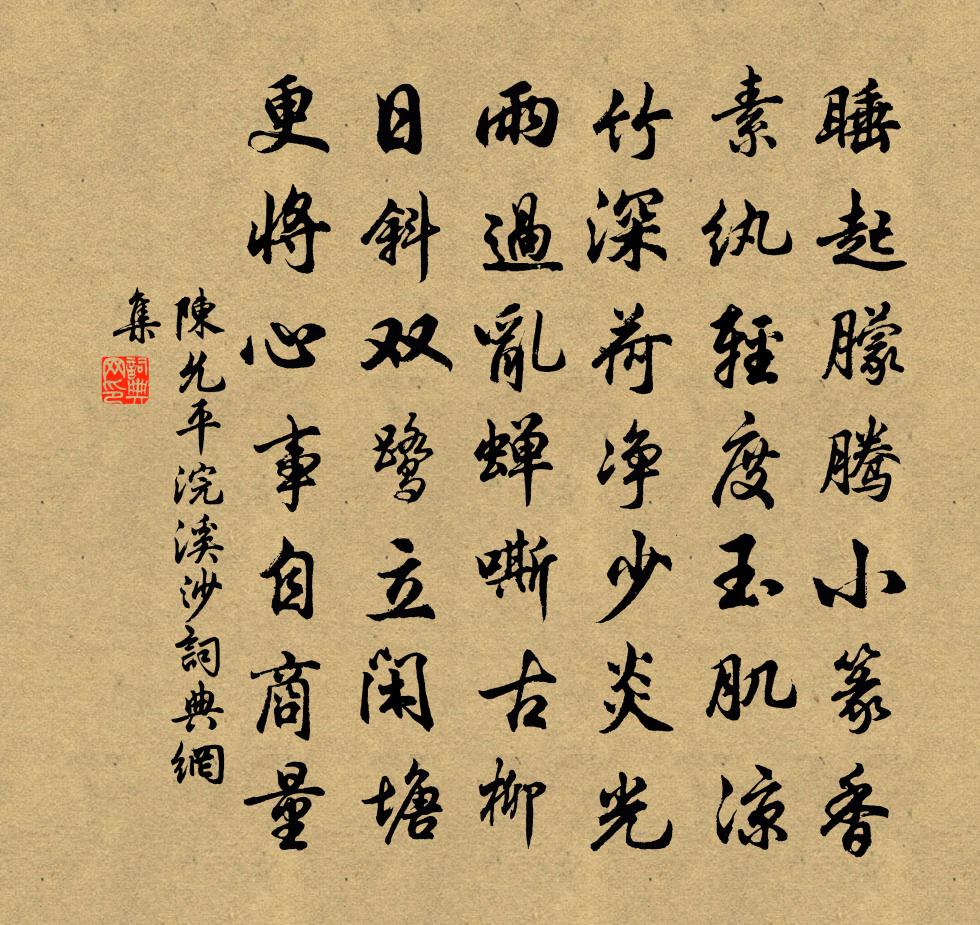 睡起朦腾小篆香
素纨轻度玉肌凉
竹深荷净少炎光
雨過亂蝉嘶古柳
日斜双鹭立闲塘
更將心事自商量
陳允平浣溪沙詞典網
集
詞典
网印